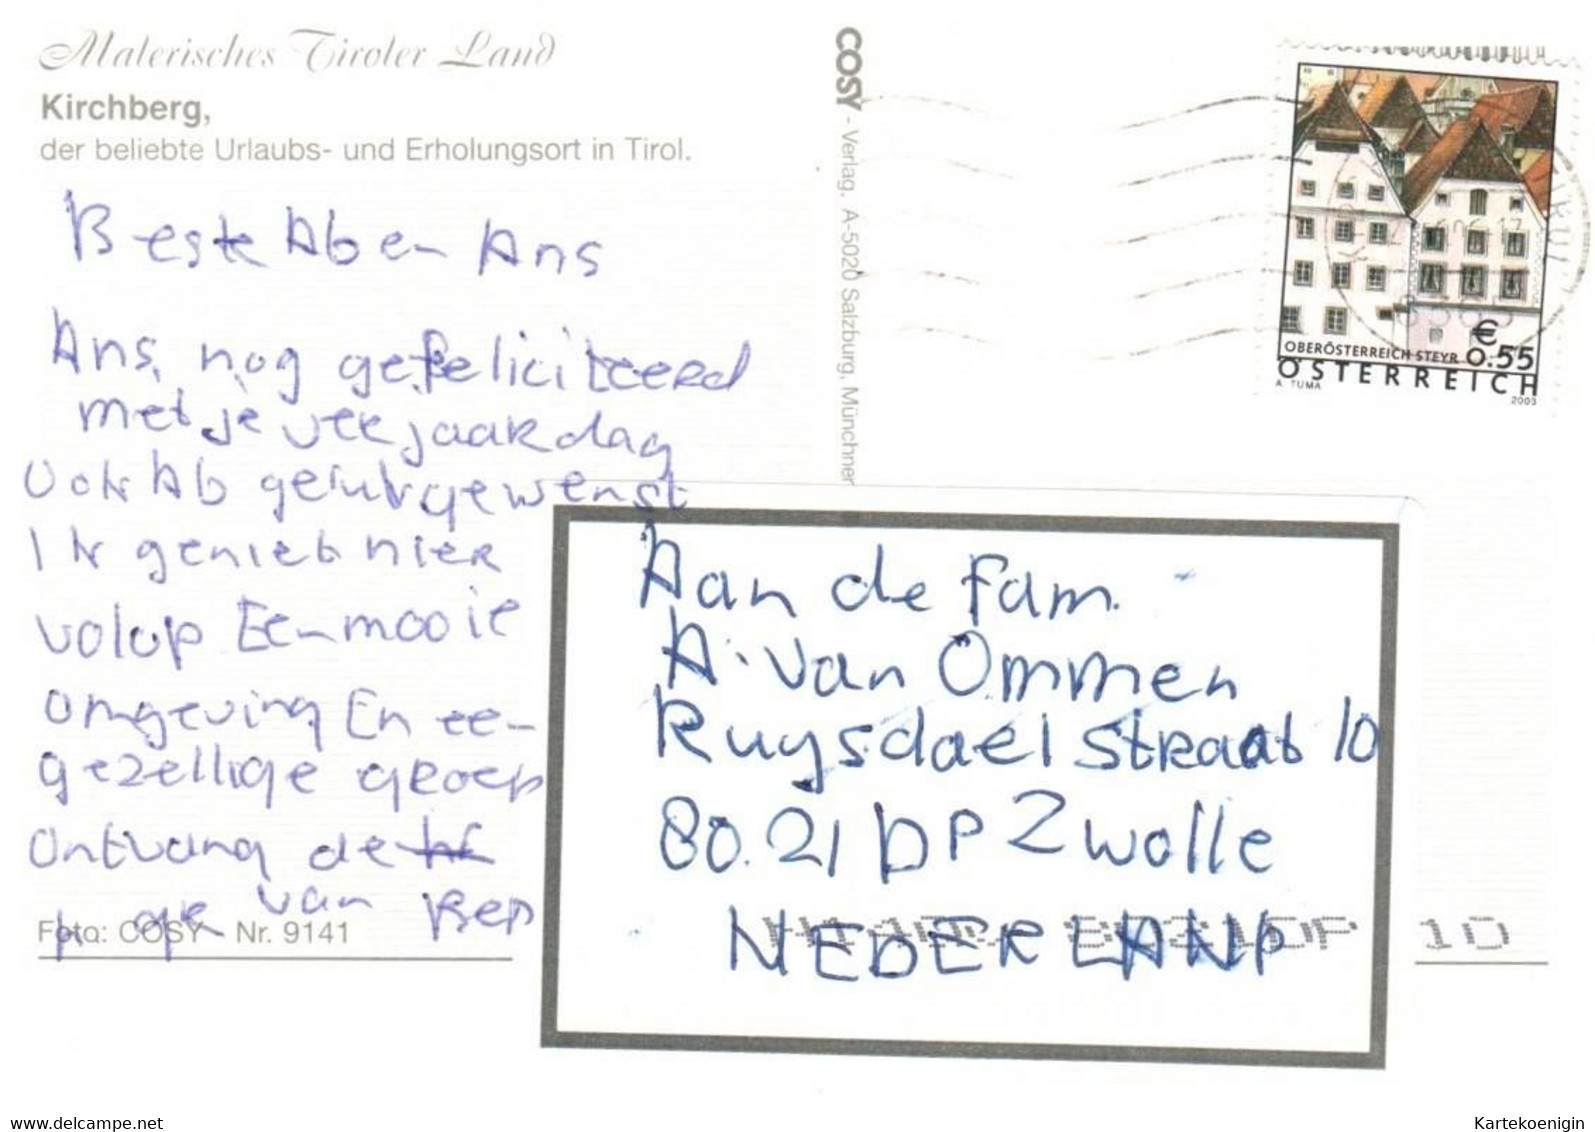 Malerisches Tiroler Land
Kirchberg,
der beliebte Urlaubs- und Erholungsort in Tirol.
Beste Ab en Ans
Ans, nog gefeliciteerd
met je verjaardag
Ook Ab geluk gewenst
Ik geniet hier
volop Een mooie
omgeving En een
gezellige groep
Ontvang de
van Bep
Foto: COSY Nr. 9141
COSY - Verlag, A-5020 Salzburg, Münchner
€
0.55
OBERÖSTERREICH STEYR
ÖSTERREICH
A. TUMA
2003
Aan de Fam.
A. van Ommen
Ruysdaelstraat 10
80.21 DP Zwolle
NEDERLAND
10
www.delcampe.net
Kartekoenigin